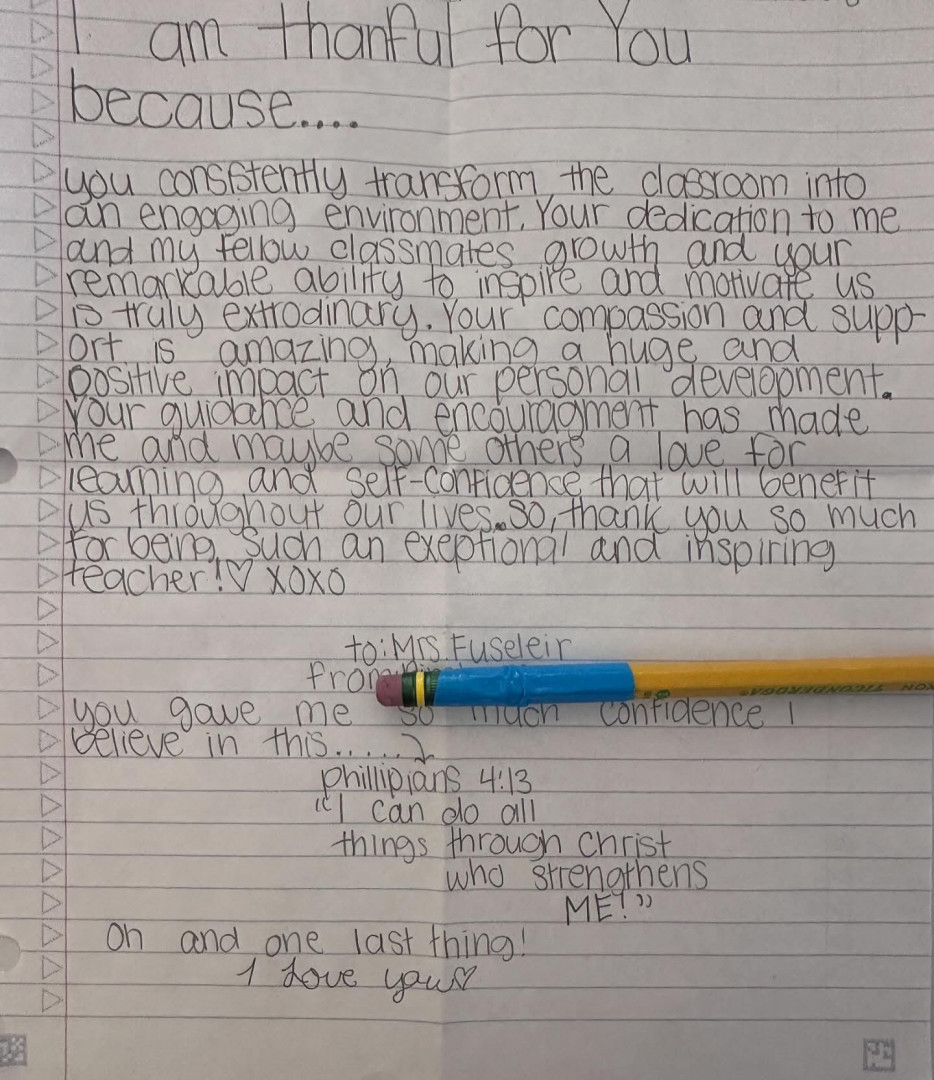 I am thanful for You
because....
you consistently transform the classroom into
an engaging environment. Your dedication to me
and my fellow classmates growth and your
remarkable ability to inspire and motivate us
is truly extrodinary. Your compassion and supp-
ort is amazing, making a huge and
positive impact on our personal development.
Your guidance and encouragment has made
me and maybe some others a love for
learning and self-confidence that will benefit
us throughout our lives. So, thank you so much
for being such an exeptional and inspiring
teacher!♡ XOXO
to: Mrs. Fuseleir
from:
you gave me so much confidence I
believe in this.....
phillipians 4:13
"I can do all
things through Christ
who strengthens
ME!"
Oh and one last thing!
I Love you♡
TICONDEROGA